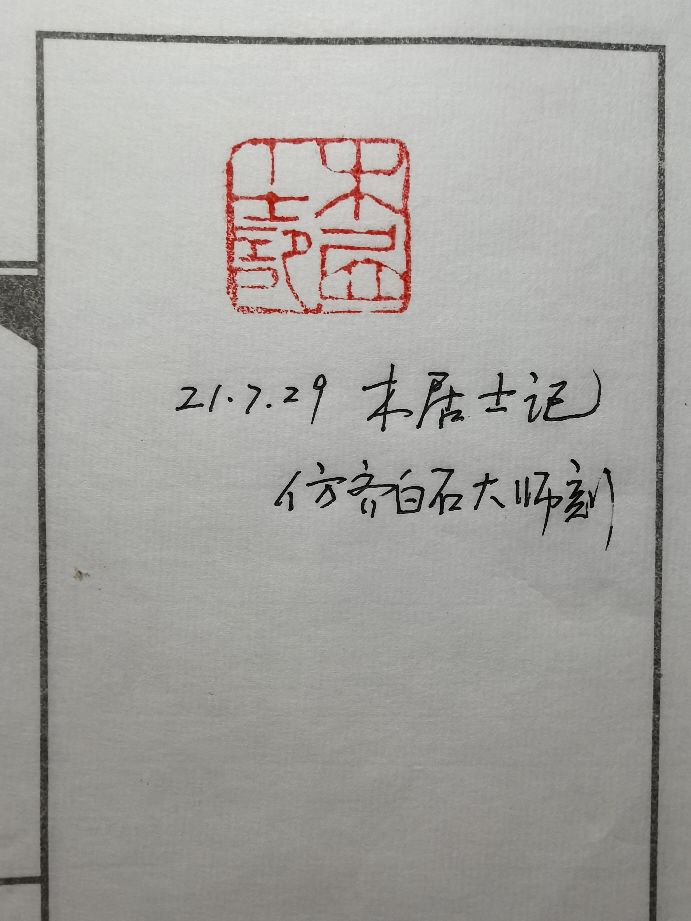 21.7.29 木居士记
仿齐白石大师刻